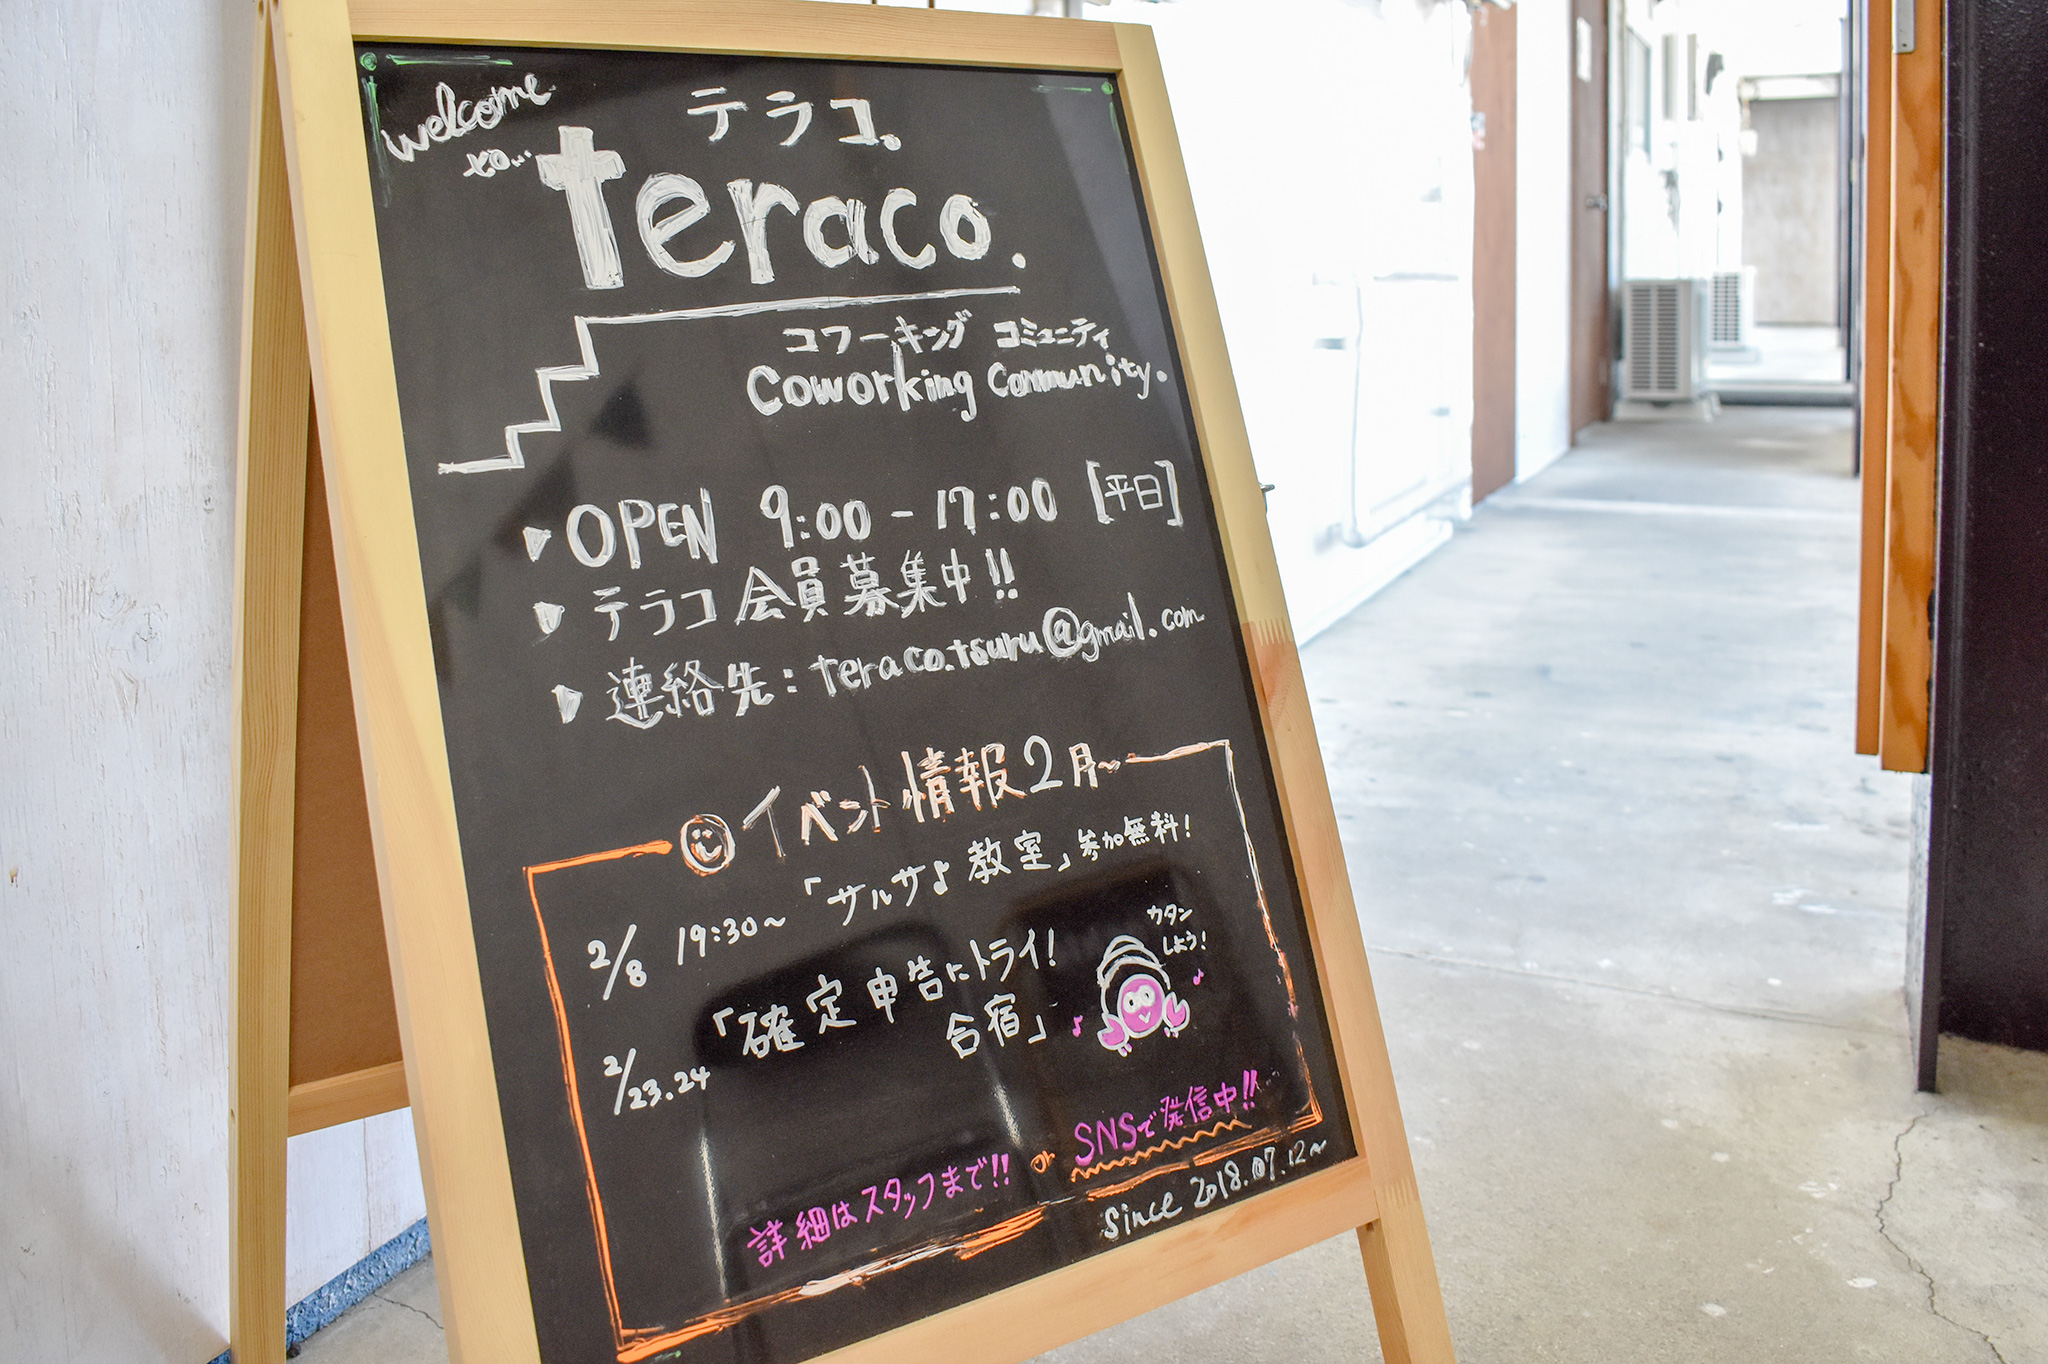 welcome
to...
テラコ。
teraco.
コワーキング コミュニティ
Coworking Community.
▶ OPEN 9:00 - 17:00 [平日]
▶ テラコ会員募集中!!
▶ 連絡先: teraco.tsuru@gmail.com
イベント情報2月~
2/8 19:30~「サルサ♪教室」参加無料!
2/23.24「確定申告にトライ!
合宿」
ウタン
しよう!
詳細はスタッフまで!! or SNSで発信中!!
Since 2018.07.12~